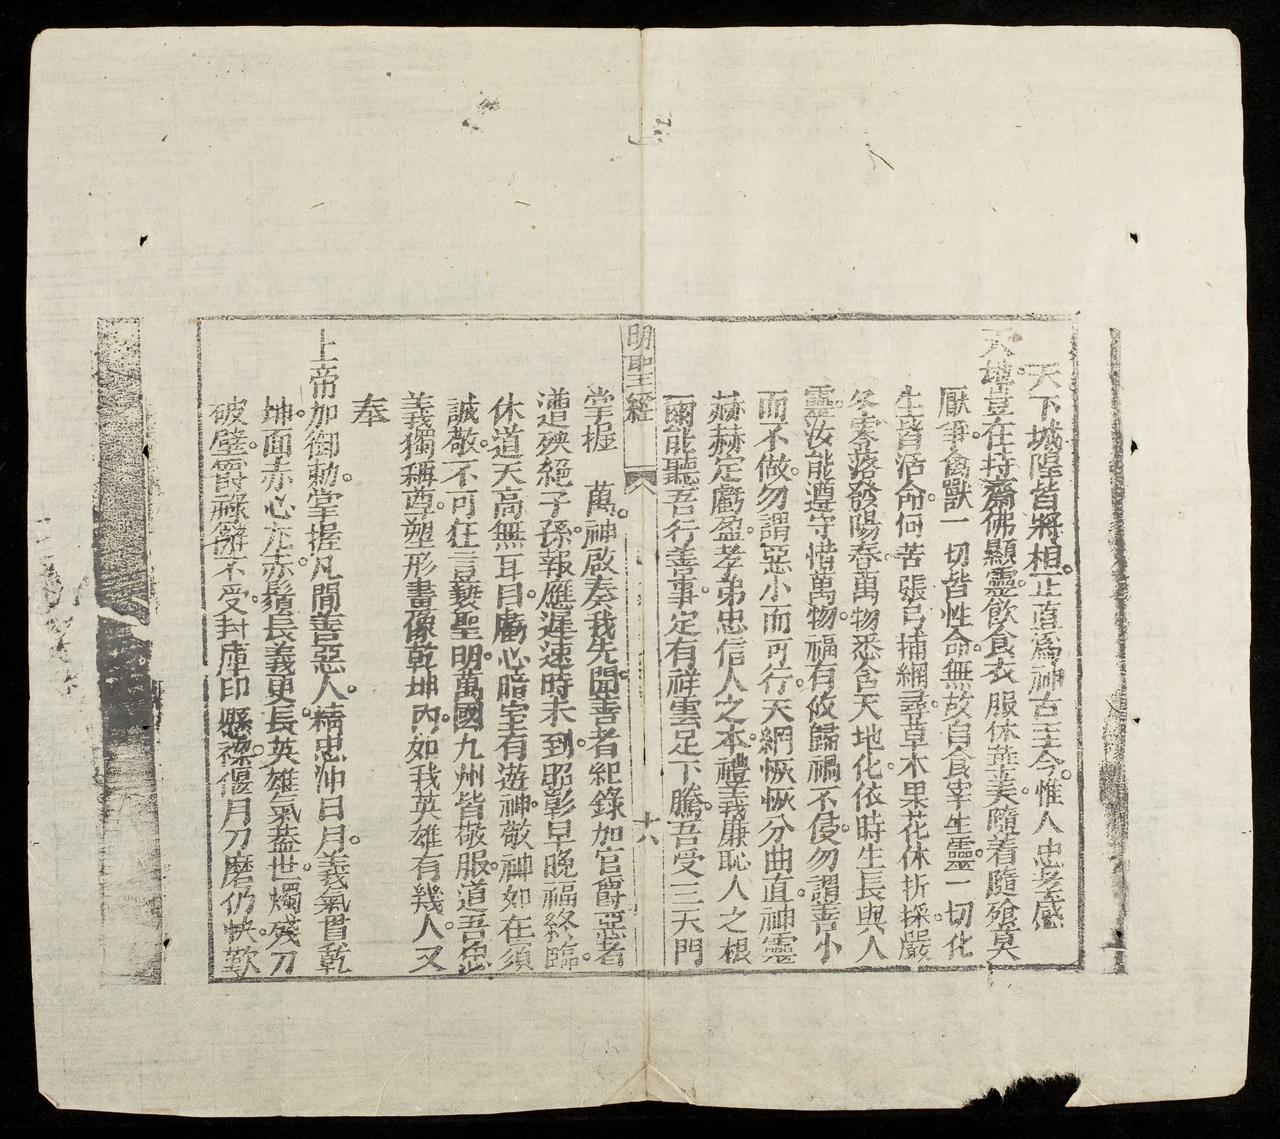 天下城隍皆將相。正直爲神古至今。惟人忠孝感
天地。豈在持齋佛顯靈。飲食衣服休華美。隨着隨飱莫
厭爭。禽獸一切皆性命。無故自食宰生靈。一切化
生皆活命。何苦張弓捕網尋。草木果花休折採。嚴
冬零落發陽春。萬物悉含天地化。依時生長與人
靈。汝能遵守惜萬物。福有攸歸禍不侵。勿謂善小
而不做。勿謂惡小而可行。天網恢恢分曲直。神靈
赫赫定虧盈。孝弟忠信人之本。禮義廉恥人之根
爾能聽吾行善事。定有祥雲足下騰。吾受三天門
明聖經
十六
掌握 萬。神啟奏我先聞。善者紀錄加官爵。惡者
遭殃絕子孫。報應遲速時未到。昭彰早晚福終臨。
休道天高無耳目。虧心暗室有遊神。敬神如在須
誠敬。不可狂言褻聖明。萬國九州皆敬服。道吾忠
義獨稱尊。塑形畫像乾坤內。如我英雄有幾人。又
奉
上帝加御勅。掌握凡間善惡人。精忠沖日月。義氣貫乾
坤。面赤心尤赤。鬚長義更長。英雄氣蓋世。燭殘刀
破壁。爵祿辭不受。封庫印懸樑。偃月刀磨仍快。歎